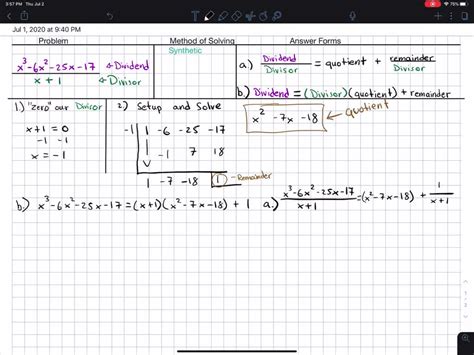 3:57 PM Thu Jul 2
75%
Jul 1, 2020 at 9:40 PM
Problem Method of Solving Answer Forms
Synthetic
x³-6x²-25x-17 ← Dividend
x+1 ← Divisor
a.) Dividend / Divisor = quotient + remainder / Divisor
b.) Dividend = (Divisor)(quotient) + remainder
1.) "Zero" our Divisor
x+1=0
-1 -1
x=-1
2) Setup and Solve
-1 1 -6 -25 -17
↓ -1 7 18
1 -7 -18 1 - Remainder
x² -7x -18 ← quotient
b) x³-6x²-25x-17=(x+1)(x²-7x-18) + 1
a.) x³-6x²-25x-17 / x+1 = (x²-7x-18) + 1 / x+1